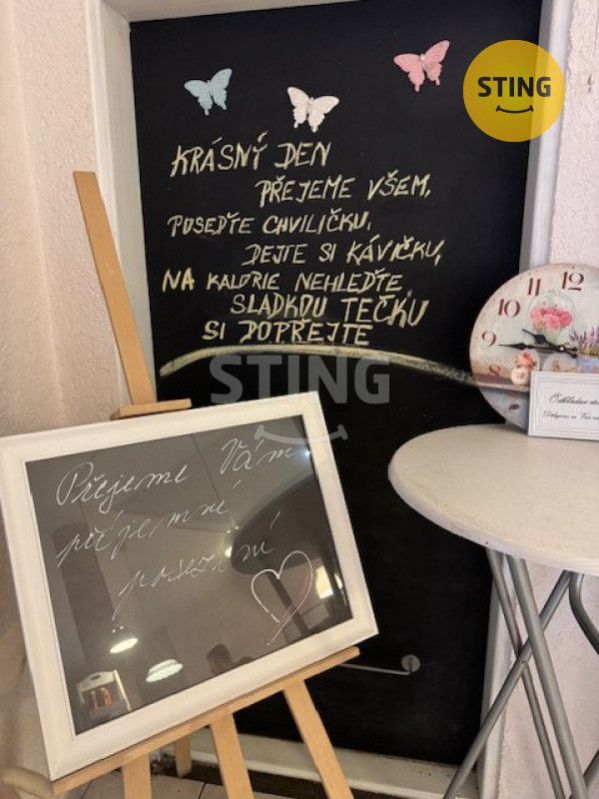 STING
KRÁSNÝ DEN
PŘEJEME VŠEM,
POSEĎTE CHVILIČKU,
DEJTE SI KÁVIČKU,
NA KALORIE NEHLEĎTE
SLADKOU TEČKU
SI DOPŘEJTE
STING
Přejeme Vám
příjemné
posezení
10 11 12
9
8
7